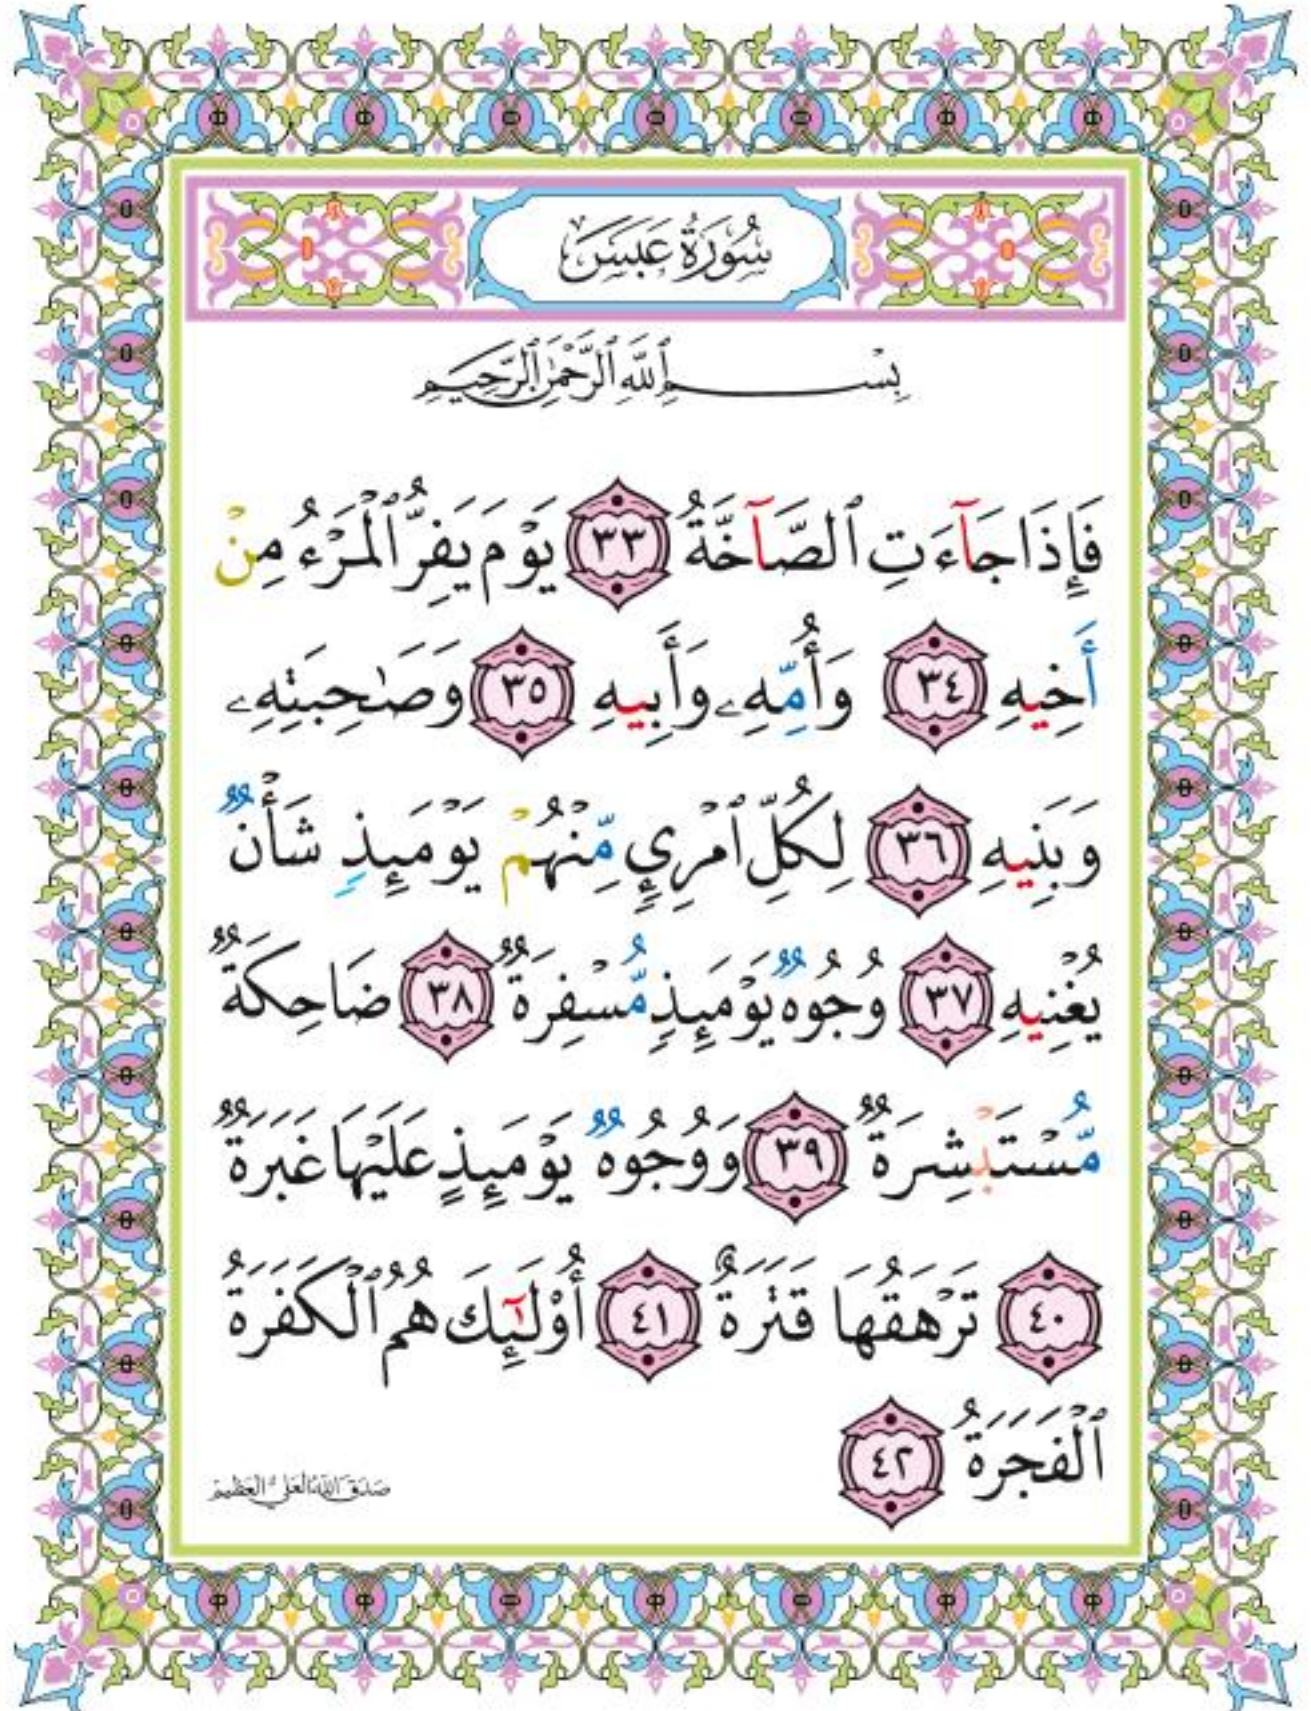 سُورَةُ عَبَسَ
بِسْمِ ٱللَّهِ ٱلرَّحْمَٰنِ ٱلرَّحِيمِ
فَإِذَا جَآءَتِ ٱلصَّآخَّةُ ٣٣ يَوْمَ يَفِرُّ ٱلْمَرْءُ مِنْ
أَخِيهِ ٣٤ وَأُمِّهِۦ وَأَبِيهِ ٣٥ وَصَٰحِبَتِهِۦ
وَبَنِيهِ ٣٦ لِكُلِّ ٱمْرِئٍ مِّنْهُمْ يَوْمَئِذٍ شَأْنٌ
يُغْنِيهِ ٣٧ وُجُوهٌ يَوْمَئِذٍ مُّسْفِرَةٌ ٣٨ ضَاحِكَةٌ
مُّسْتَبْشِرَةٌ ٣٩ وَوُجُوهٌ يَوْمَئِذٍ عَلَيْهَا غَبَرَةٌ
٤٠ تَرْهَقُهَا قَتَرَةٌ ٤١ أُوْلَٰٓئِكَ هُمُ ٱلْكَفَرَةُ
ٱلْفَجَرَةُ ٤٢
صَدَقَ اللهُ العَلِيُّ العَظِيمُ